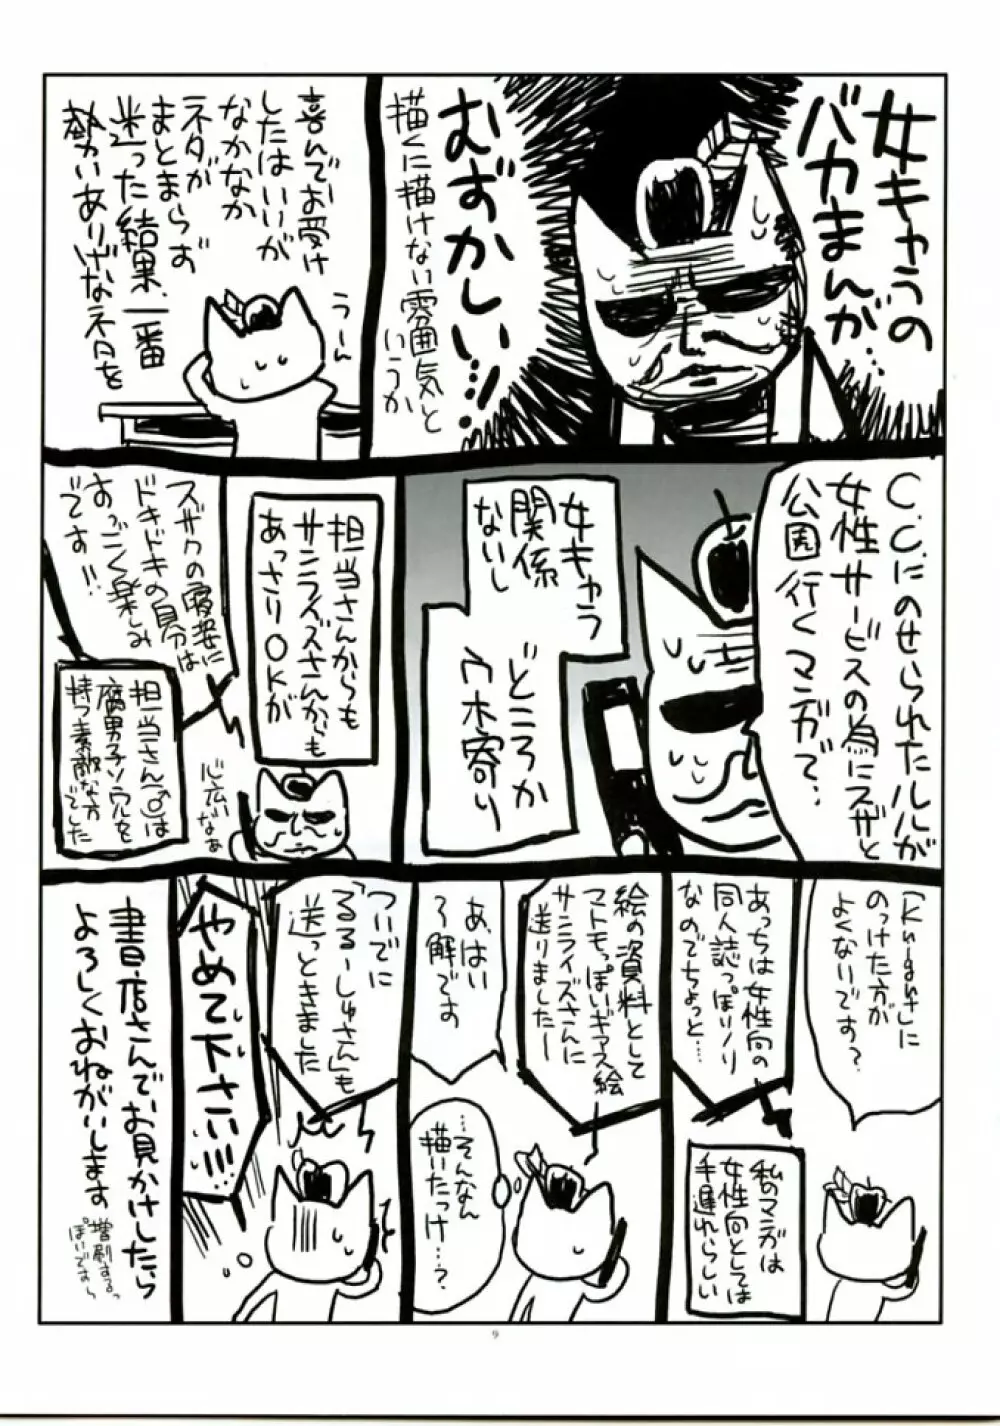 女キャラの
バカまんが…
むずかしい…!
描くに描けない雰囲気と
いうか
喜んでお受け
したはいいが
なかなか
ネタが
まとまらず
迷った結果、一番
勢いありげなネタを
うーん
C.C.にのせられたルルが
女性サービスの為にスザと
公園行くマンガで…
女キャラ
関係
ないし
どころか
ウホ寄り
担当さんからも
サンライズさんからも
あっさりOKが
スザクの寝姿に
ドキドキの自分は
すっごく楽しみ
です!!
担当さん♂は
腐男子ソウルを
持つ素敵な方
でした
心広いなぁ
「Knights」に
のっけた方が
よくないです?
あっちは女性向の
同人誌っぽいノリ
なのでちょっと…
私のマンガは
女性向としては
手遅れらしい
絵の資料として
マトモっぽいギアス絵
サンライズさんに
送りましたー
あ、はい
了解です
…そんなん
描いたっけ…?
ついでに
「るるーしゅさん」も
送っときました
やめて下さい!!!
書店さんでお見かけしたら
よろしくおねがいします
増刷するっ
ぽいですら
9